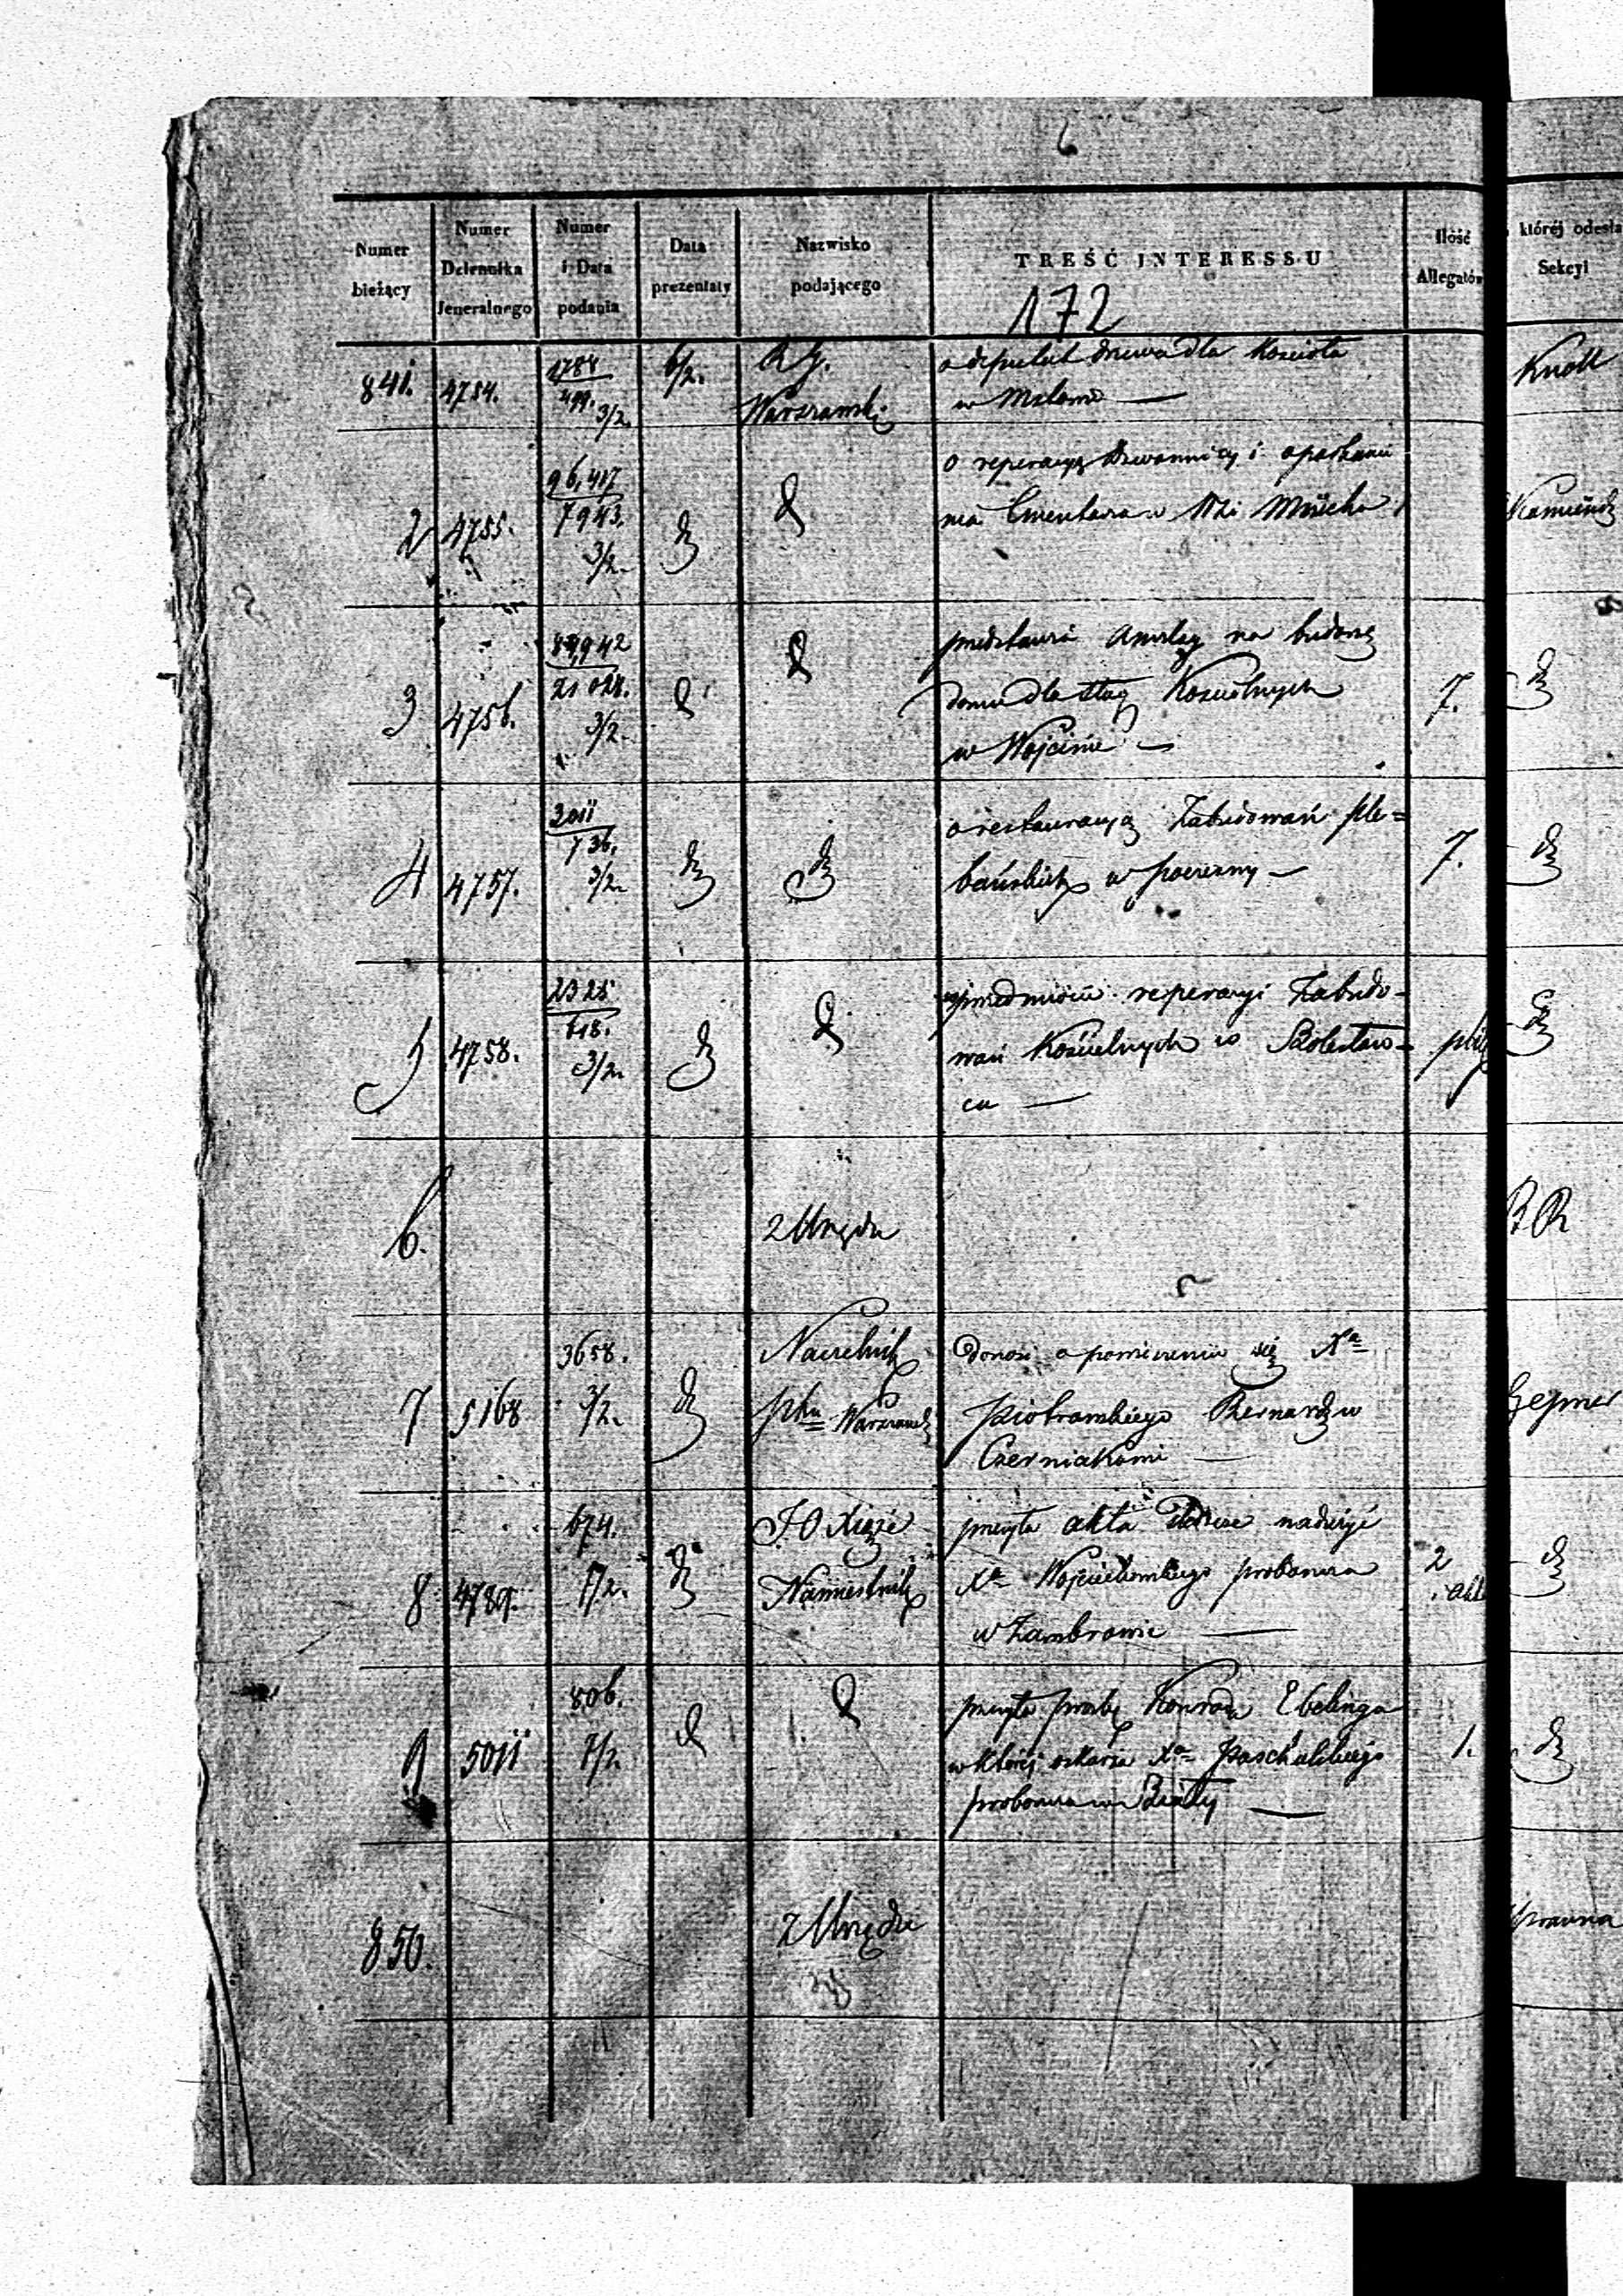 6
Numer bieżący
Numer Dziennika Jeneralnego
Numer i Data podania
Data prezentaty
Nazwisko podającego
TREŚĆ INTERESSU
Ilość Allegatów
której odesła
Sekcyi
172
841. 4754. 1784 499. 3/2. 6/2. R. G. Warszawski
o deputat drzewa dla Kościoła
w
Knoll
2 4755. 96,417 7943. 3/2. d
o reperacyę Dzwonnicy i
nia Cmentarza w Wsi
3 4756. 89,942 21 028. 3/2. d
przedstawia Anszlag na budowę
domu dla sług Kościelnych
w Wójcinie
7. d
4 4757. 2011 736. 3/2. d d
o restauracyą Zabudowań ple=
bańskich w
7. d
5 4758. 2325 618. 3/2. d d
w przedmiocie reperacyi Zabudo-
wań Kościelnych w Bolesław-
cu
d
6. z Urzędu
B R
7 5168 3658. 3/2. d Naczelnik
Ptu Warszawsk
Donosi o się Xa
Piotrowskiego Bernard. w
Czerniakowie
8 4789. 674. 7/2. d J O Xiąże
Namiestnik
przesyła akta nadużyć
Xa Wojciechowskiego proboszcza
w Zambrowie
2 akt d
9 5011 806. 7/2. d d
przesyła prośbę Konrada Ebelinga
w której oskarża Xa Paschalskiego
proboszcza w Biały
1. d
850. z Urzędu